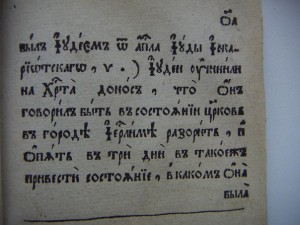 ѾА
былъ Іꙋдеемъ ѿ апⷭ҇ла Іꙋды Іска-
ріѡтскагѡ, ѵ.) Іꙋдеи ѹчинили
на Хрⷭ҇та доносъ, что ѻнъ
говорилъ быть въ состоѧніи црковь
въ городѣ Іерⷭ҇лимѣ разорить, и
ѻпѧть въ три дни въ такоежъ
привести состоѧніе, в какомъ ѻна
была